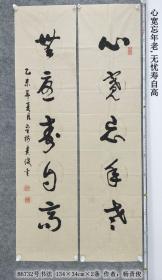 心宽忘年老,无忧寿自高
心寬忘年老
無憂壽自高
乙未年夏月
88732号书法 134×34cm×2条 作者:杨贵俊